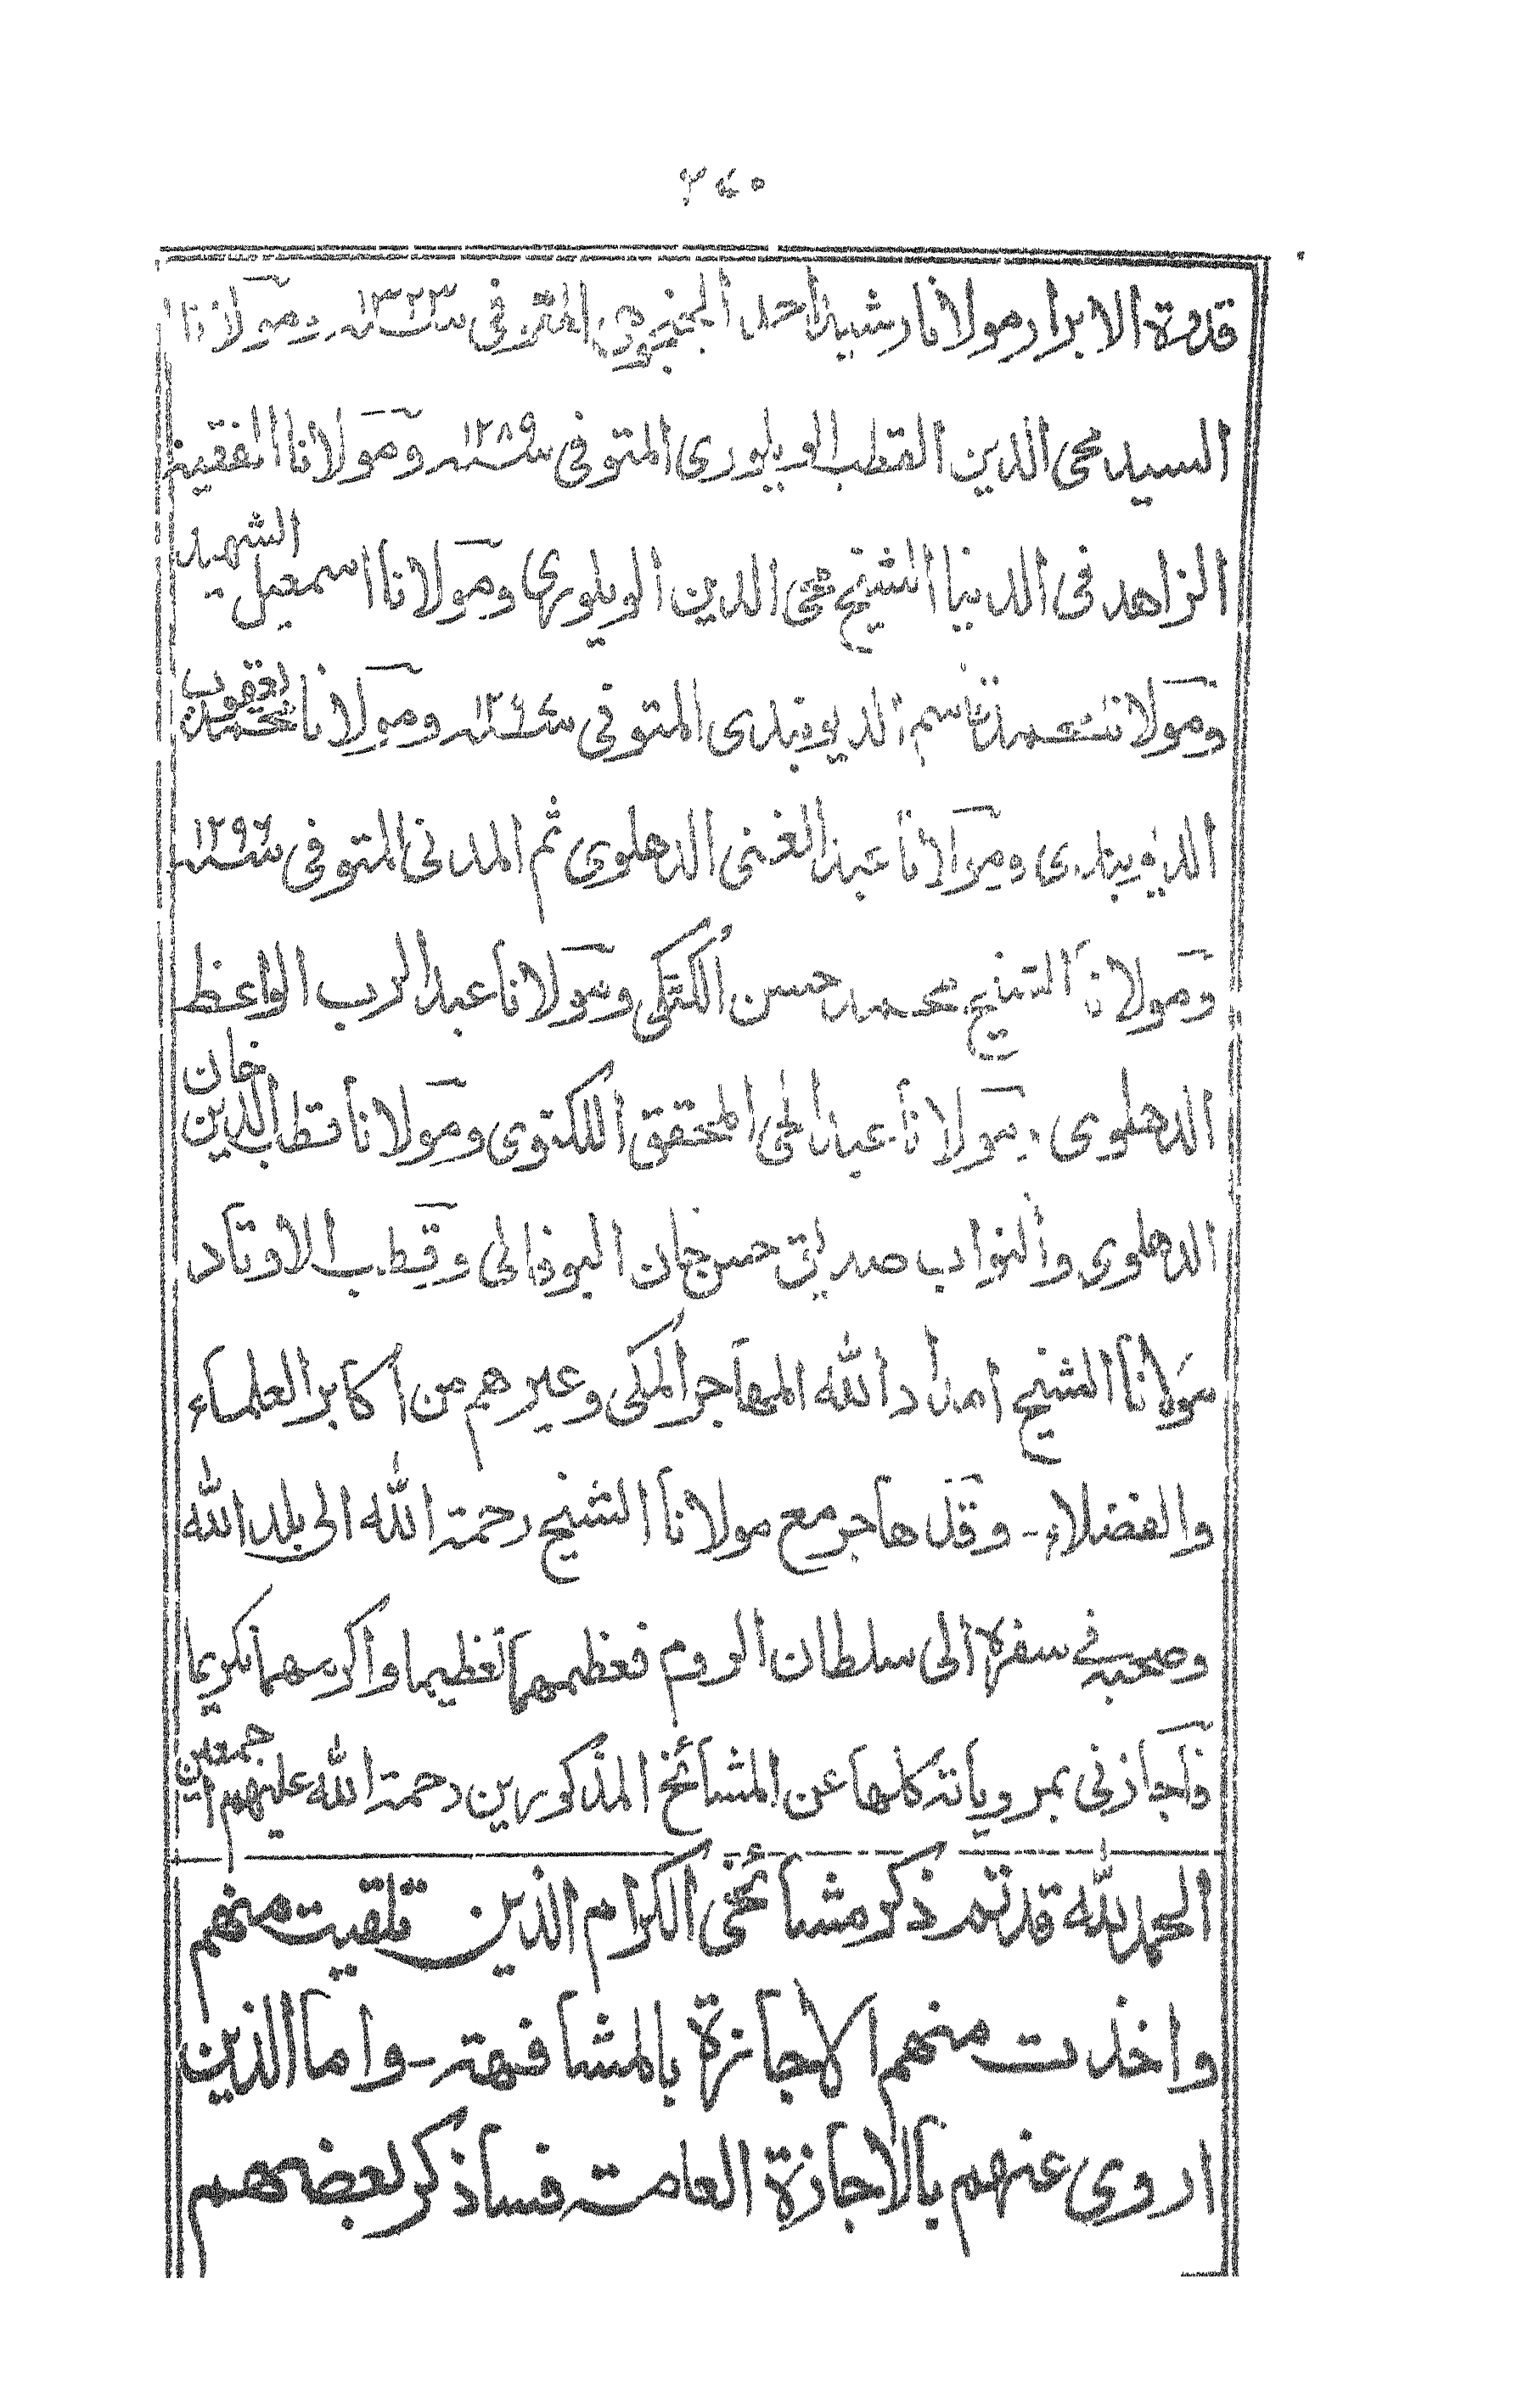 ٢٤٠
قدوة الابرار مولانا رشيد احمد الجنجوهى المتوفى سنة ١٣٢٣ ومولانا
السيد محى الدين القطب الويلورى المتوفى سنة ١٢٨٩ ومولانا الفقيه
الزاهد فى الدنيا الشيخ محى الدين الويلورى ومولانا اسمعيل الشهيد -
ومولانا محمد قاسم الديوبندى المتوفى سنة ومولانا محمد يعقوب
الديوبندى ومولانا عبد الغنى الدهلوى ثم المدنى المتوفى سنة ١٢٩٦
ومولانا الشيخ محمد حسن المكى ومولانا عبد الرب الواعظ
الدهلوى ومولانا عبد الحى المحقق اللكنوى ومولانا قطب الدين خان
الدهلوى والنواب صديق حسن خان البوفالى وقطب الاوتاد
مولانا الشيخ امداد الله المهاجر المكى وغيرهم من اكابر العلماء
والفضلاء - وقد هاجر مع مولانا الشيخ رحمة الله الى بلد الله
وصحبه فى سفره الى سلطان الروم فعظمهما تعظيما واكرمهما تكريما
فاجازنى بمروياته كلها عن المشائخ المذكورين رحمة الله عليهم اجمعين
الحمد لله قد تم ذكر مشائخى الكرام الذين تلقيت منهم
واخذت منهم الاجازة بالمشافهة - واما الذين
اروى عنهم بالاجازة العامة فساذكر بعضهم